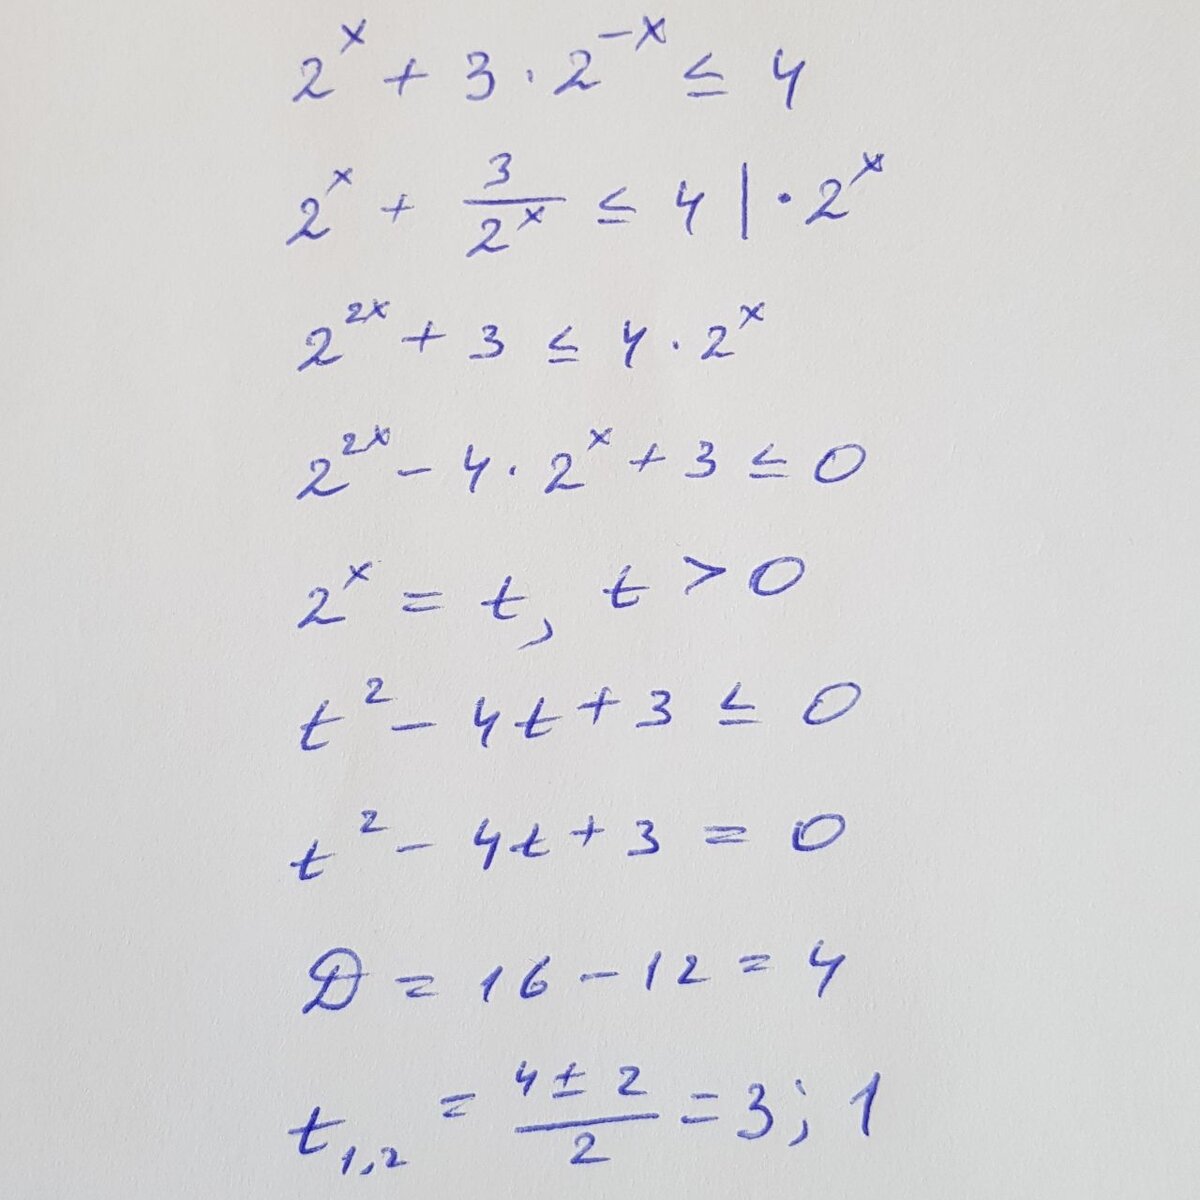 2^x + 3 · 2^{-x} ≤ 4
2^x + \frac{3}{2^x} ≤ 4 | · 2^x
2^{2x} + 3 ≤ 4 · 2^x
2^{2x} - 4 · 2^x + 3 ≤ 0
2^x = t, t > 0
t^2 - 4t + 3 ≤ 0
t^2 - 4t + 3 = 0
D = 16 - 12 = 4
t_{1,2} = \frac{4 ± 2}{2} = 3; 1